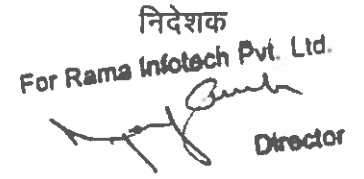 निदेशक
For Rama Infotech Pvt. Ltd.
Director